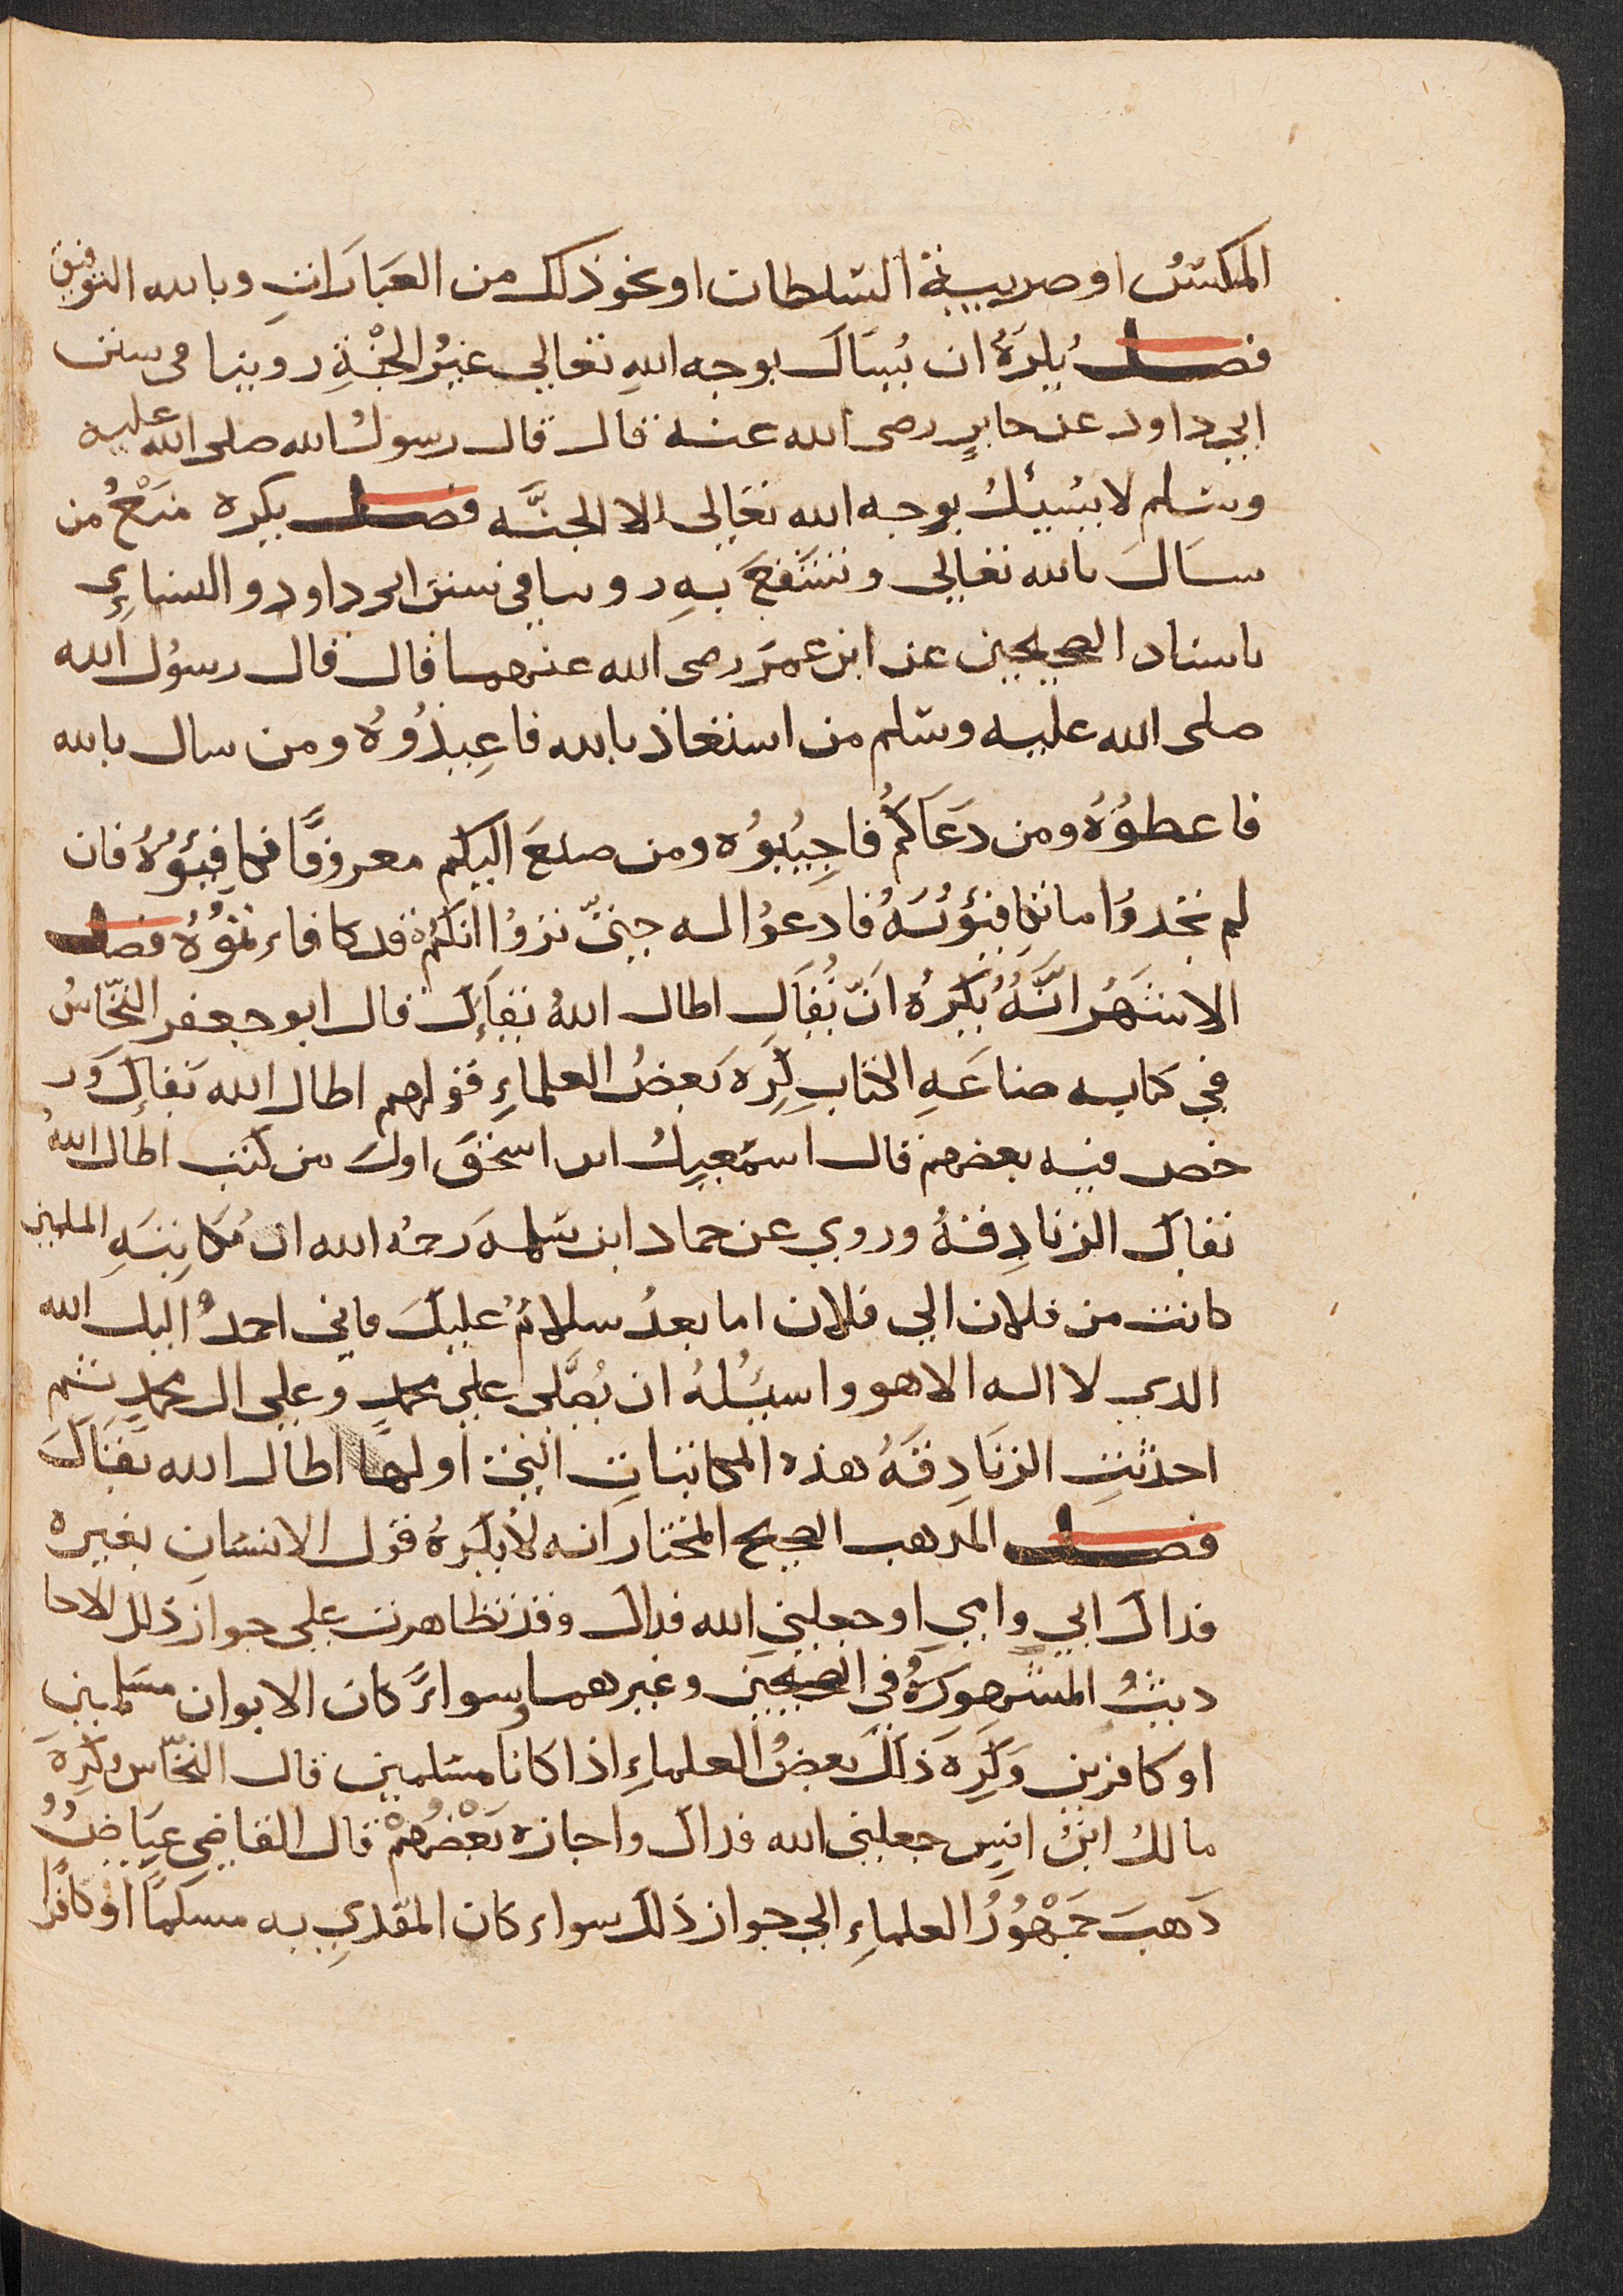 المكسُ او ضريبة السلطان او نحو ذلك من العبارات وبالله التوفيق
فصل يُكرَهُ ان يُسال بوجه اللهِ تعالي غيرُ الجنةِ روينا في سنن
ابي داود عن جابرٍ رضى الله عنه قال قال رسولُ الله صلى الله عليه
وسلم لا يُسئلُ بوجه الله تعالى الا الجنَّه فصل يكره منْعُ من
سَالَ بالله تعالي وتشَفعَ بهِ روينا في سنن ابى داود والنساءِي
باسناد الصحيحين عن ابن عمرَ رضى الله عنهما قال قال رسوُل الله
صلى الله عليه وسلم من استعاذ بالله فاعِيذُوُهُ ومن سال بالله
فاعطوُهُ ومن دَعَاكُم فاجِيُبوُه ومن صنعَ اليكم معروفًا فكافِئوُهُ فان
لم تجدوُا ما تكافِئوُنهُ فادعوُا له حتىّ تروُا انكُم قد كافاءتموُهُ فصل
الاشهَرُ انَّهُ يُكَرهُ انّ يُقَال اطال اللهُ بقاَءك قال ابو جعفر النحّاسُ
في كتابه صناعَهِ الكتابِ كَرِهَ بَعضُ العلماءِ قولهم اطال الله بَقاءكَ ور
خص فيه بعضهم قال اسمَعيلُ ابن اسحقَ اولَ من كتب اطال اللهُ
بقاك الزنادِقهُ وروي عن حماد ابن سلمهَ رحمُه الله ان مُكاتبَهِ المسلمين
كانت من فلان الي فلان اما بعدُ سلامُ عليكَ فاني احمدُ اليك الله
الدي لا اله الا هو واسئلُهُ ان يُصَلى علي محمدٍ وعلي ال محمدٍ ثم
احدثتِ الزنَادِقهُ هذه المكاتباتِ التي اولها اطال الله بَقَاكَ
فصل المدهب الصحيح المختار انه لا يُكَرهُ قول الانسَانِ بغيره
فداك ابي وامي او جعلني الله فداك وقد تظاهرت علي جواز ذلك الاحا
ديثُ المشهورَهُ في الصحيحين وغيرهما وسواءً كان الابوان مسَلمين
او كافرين وَكَرِهَ ذلكَ بعضُ العلماءِ اذا كانا مسَلمين قال النحّاس وكَرِهَ
مالكُ ابنُ انسِ جعلني الله فداك واجازه بَعْضُهمْ قال القاضي عيَاضُ
دَهبَ جَمْهوُرُ العلماءِ الي جواز ذلكَ سواء كان المفدي به مسلماً او كافرا